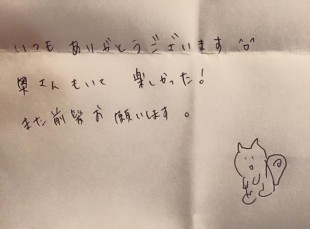 いつも ありがとうございます ^o^
奥さんもいて 楽しかった!
また前髪お願いします。